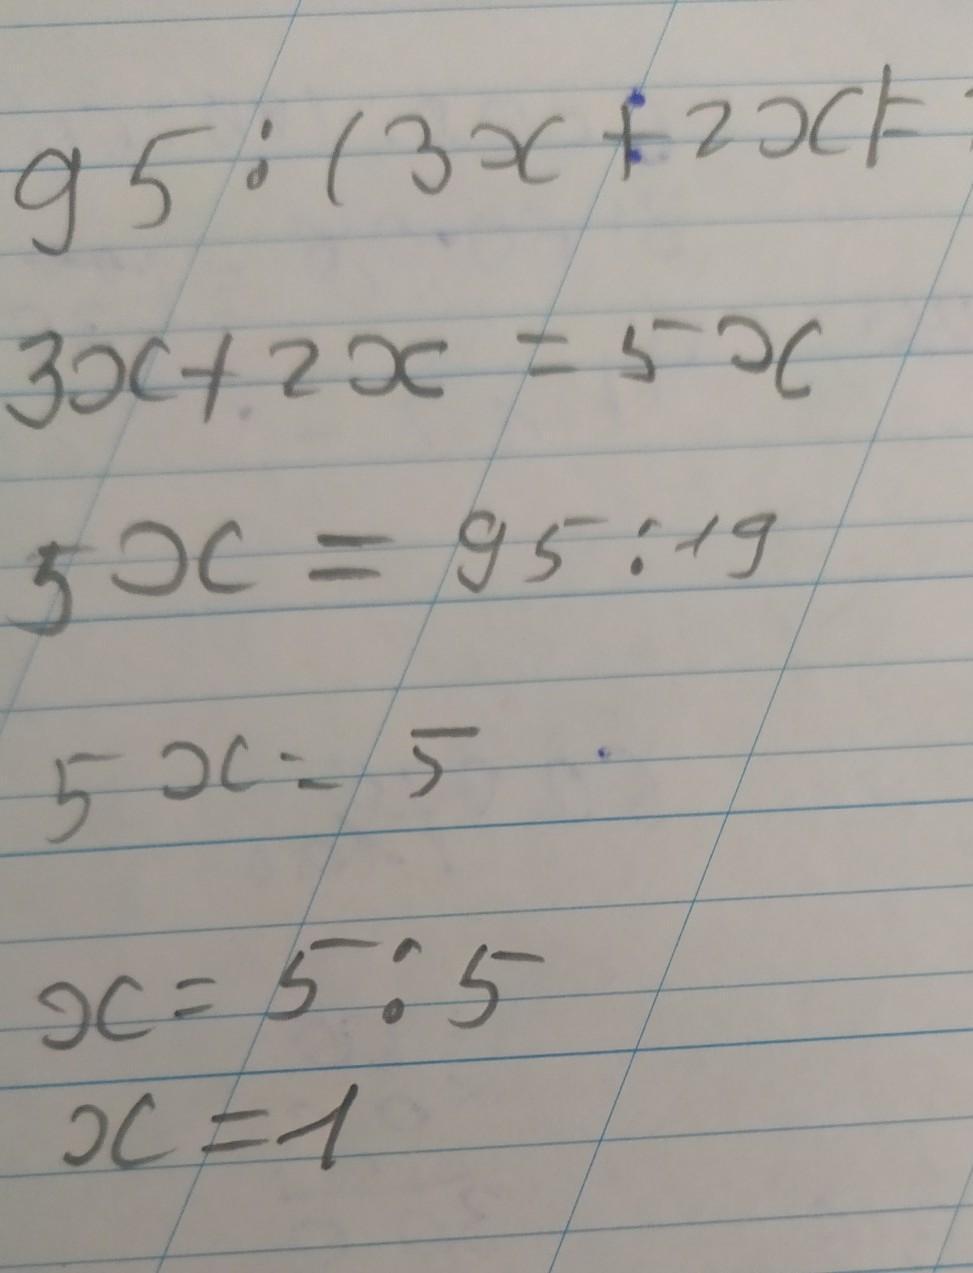 95 : (3x + 2x) =
3x + 2x = 5x
5x = 95 : 19
5x = 5
x = 5 : 5
x = 1